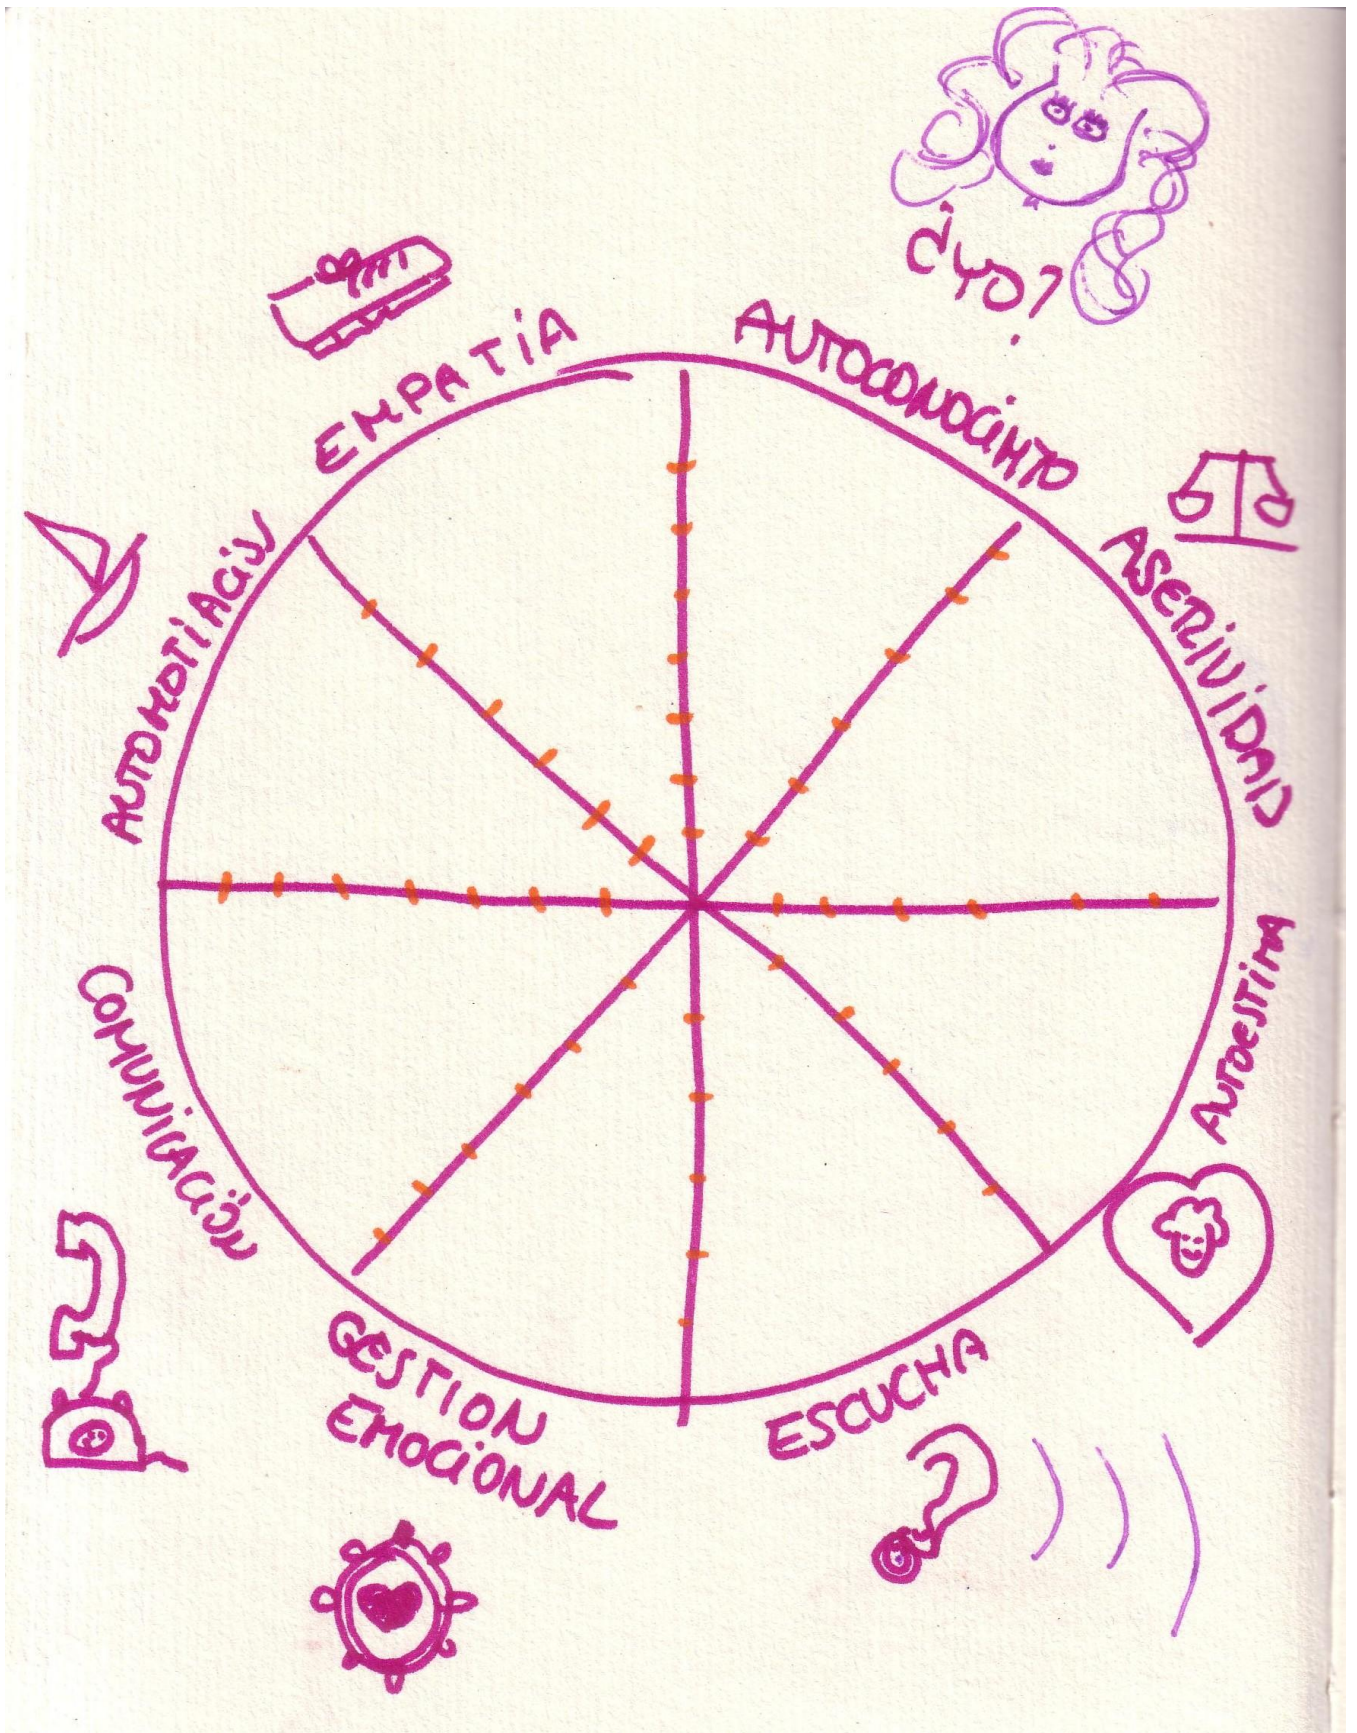 ¿yo?
AUTOCONOCIMTO
ASERIVIDAD
AUTOESTIMA
ESCUCHA
GESTION
EMOCIONAL
COMUNICACIÓN
AUTOMOTIACIÓN
EMPATIA